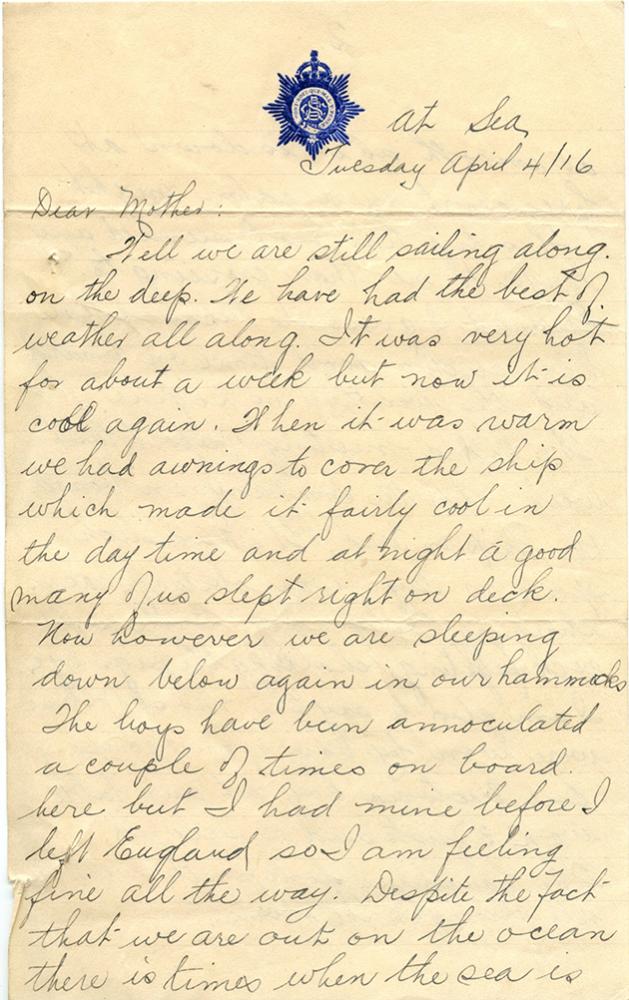 At Sea,
Tuesday April 4/16
Dear Mother:
Well we are still sailing along.
on the deep. We have had the best of
weather all along. It was very hot
for about a week but now it is
cool again. When it was warm
we had awnings to cover the ship
which made it fairly cool in
the day time and at night a good
many of us slept right on deck.
Now however we are sleeping
down below again in our hammocks
The boys have been annoculated
a couple of times on board.
here but I had mine before I
left England so I am feeling
fine all the way. Despite the fact
that we are out on the ocean
there is times when the sea is